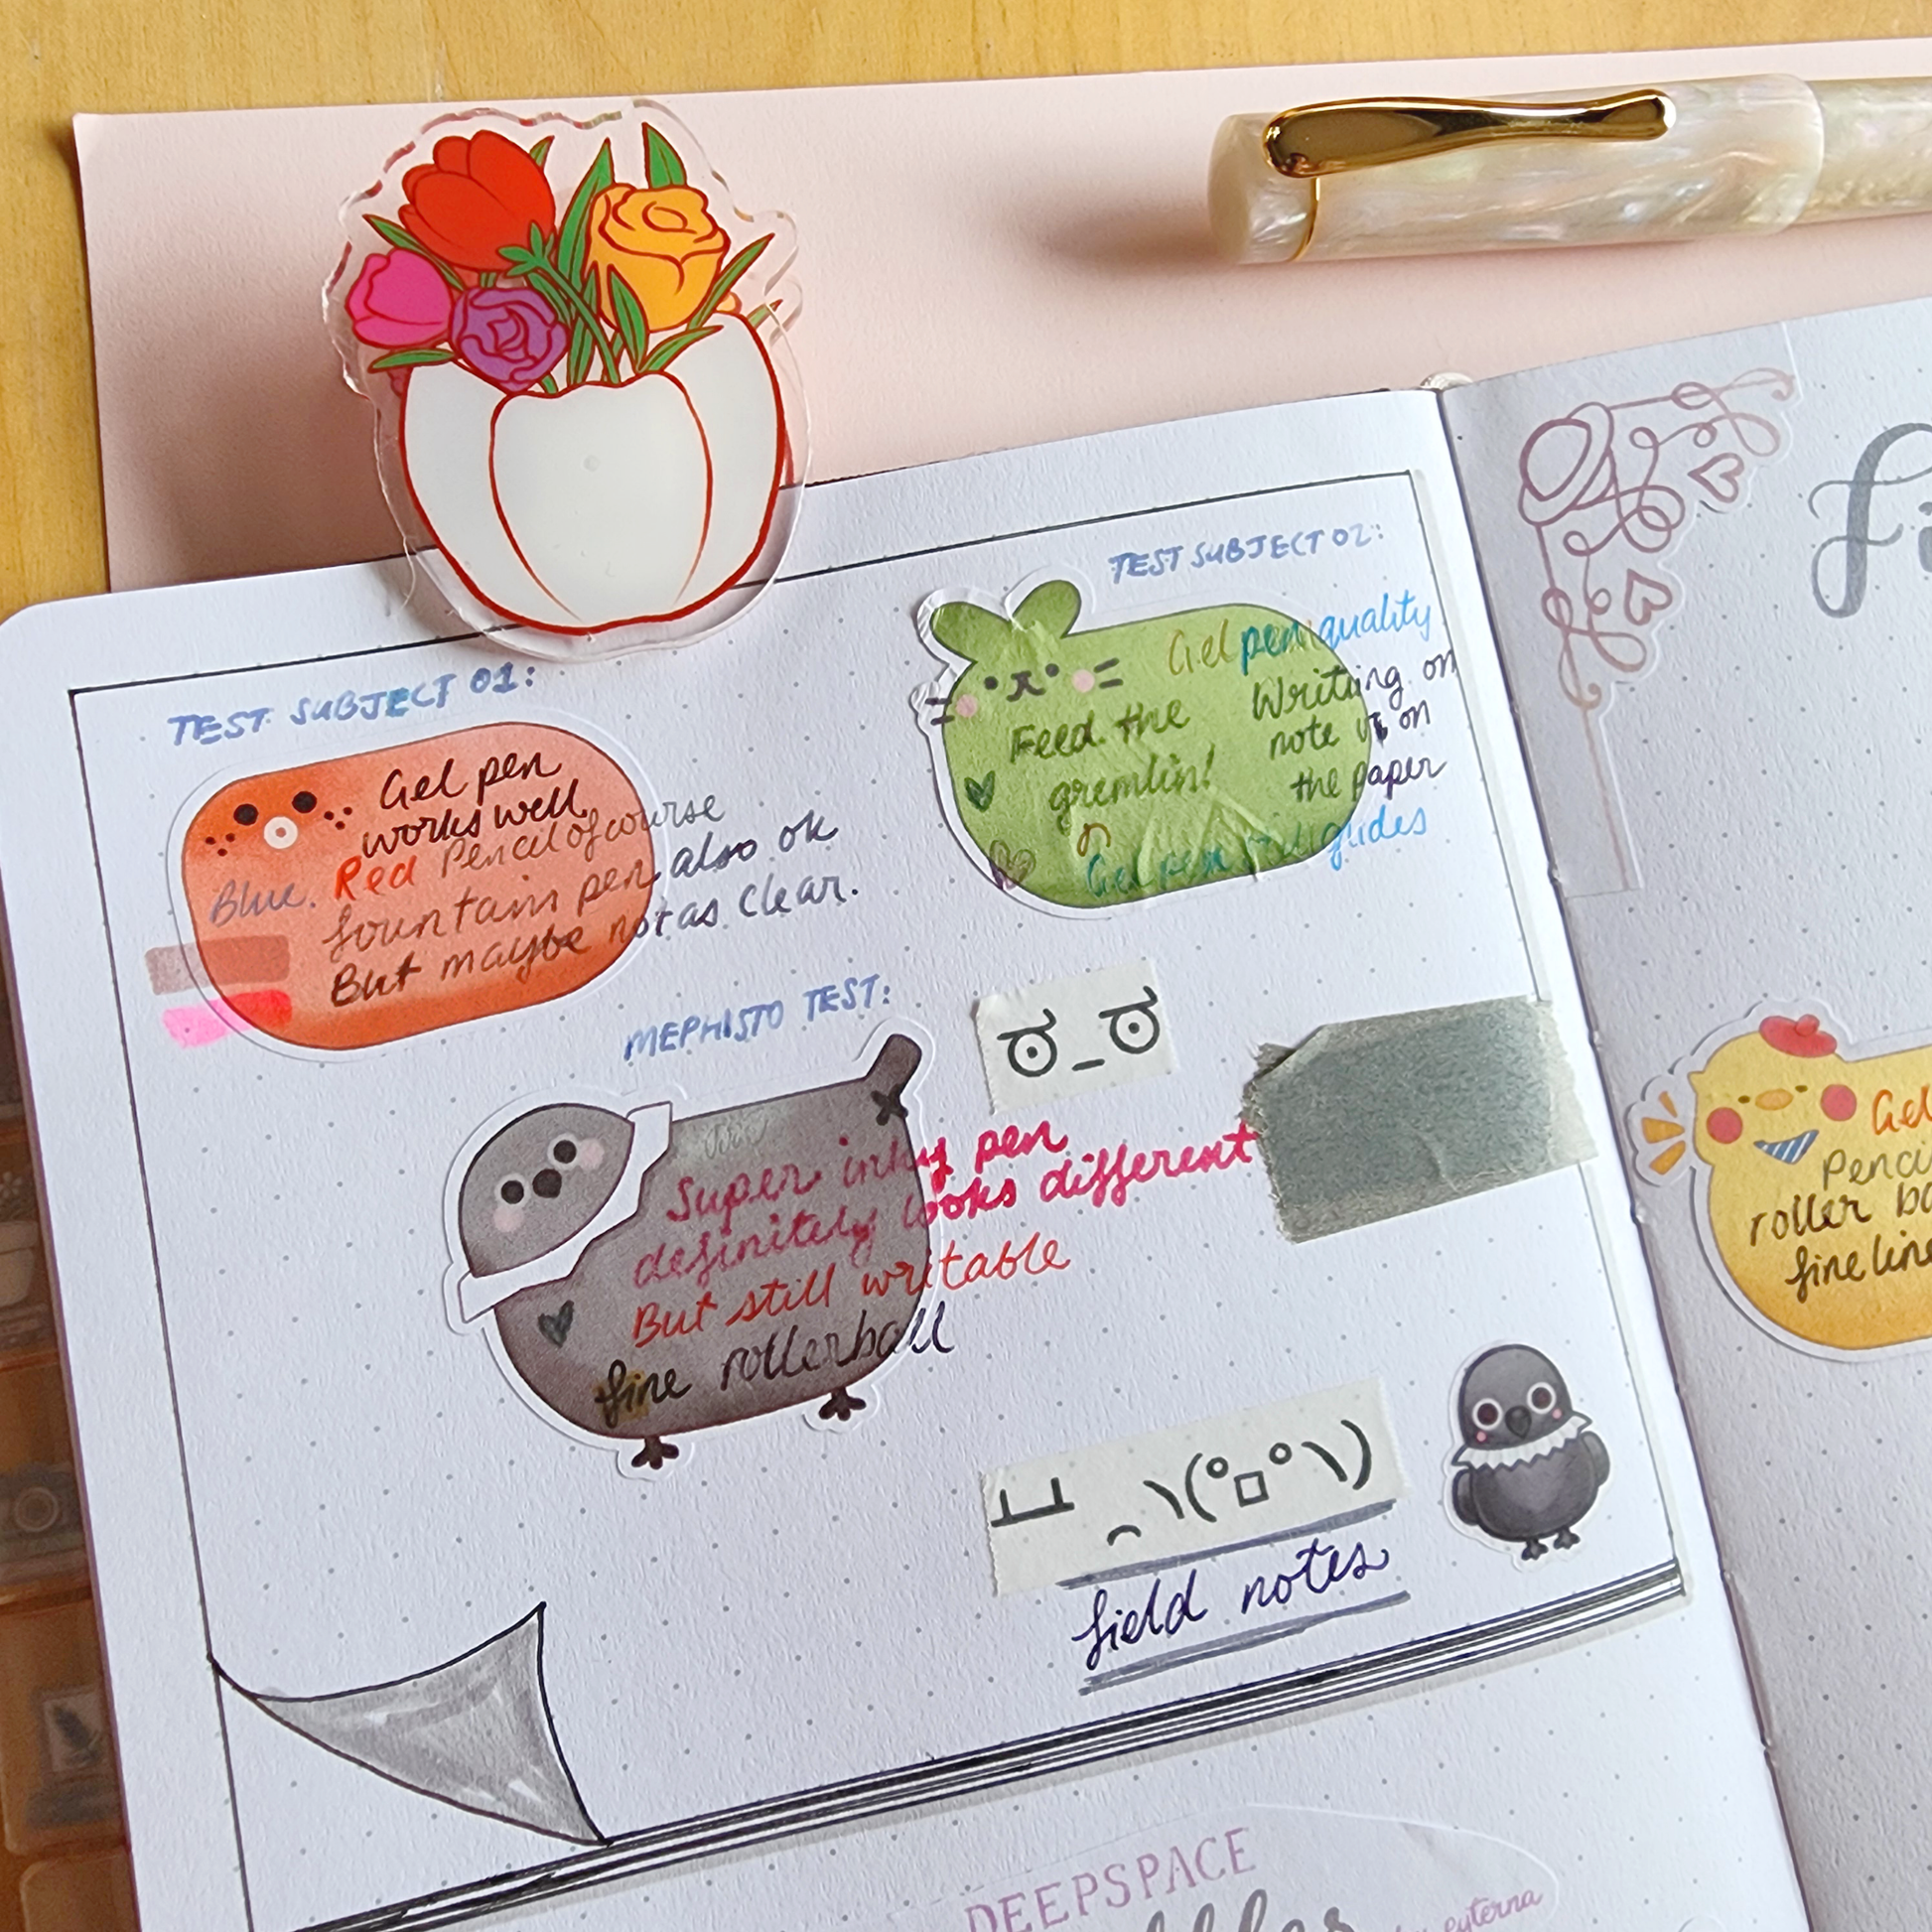 TEST SUBJECT 01:
Gel pen
works well
Red Pencil of course
Blue.
fountain pen also ok
But maybe not as clear.
TEST SUBJECT 02:
Gel pen quality
Feed the
gremlin!
Writing on
note vs on
the paper
Gel pen guides
MEPHISTO TEST:
ಠ_ಠ
Super inky pen
definitely looks different
But still writable
fine rollerball
┻━┻ ︵ヽ(°□°ヽ)
field notes
DEEPSPACE
fi
Gel
roller
fine line